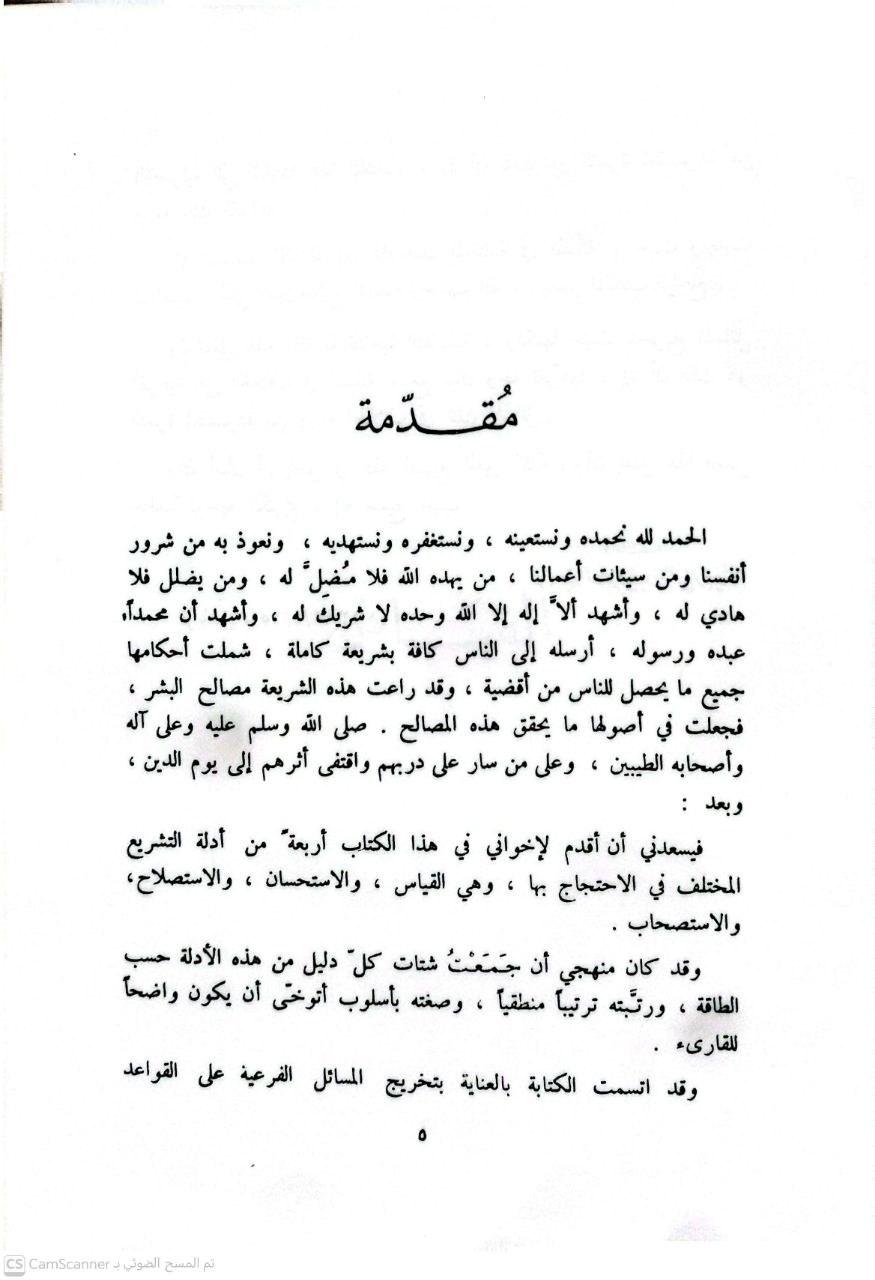 مُقـــدّمة
الحمد لله نحمده ونستعينه ، ونستغفره ونستهديه ، ونعوذ به من شرور
أنفسنا ومن سيئات أعمالنا ، من يهده الله فلا مُضِلَّ له ، ومن يضلل فلا
هادي له ، وأشهد ألاَّ إله إلا الله وحده لا شريك له ، وأشهد أن محمداً
عبده ورسوله ، أرسله إلى الناس كافة بشريعة كاملة ، شملت أحكامها
جميع ما يحصل للناس من أقضية ، وقد راعت هذه الشريعة مصالح البشر ،
فجعلت في أصولها ما يحقق هذه المصالح . صلى الله وسلم عليه وعلى آله
وأصحابه الطيبين ، وعلى من سار على دربهم واقتفى أثرهم إلى يوم الدين ،
وبعد :
فيسعدني أن أقدم لإخواني في هذا الكتاب أربعةً من أدلة التشريع
المختلف في الاحتجاج بها ، وهي القياس ، والاستحسان ، والاستصلاح،
والاستصحاب .
وقد كان منهجي أن جَمَعْتُ شتات كلّ دليل من هذه الأدلة حسب
الطاقة ، ورتَّبته ترتيباً منطقياً ، وصغته بأسلوب أتوخّى أن يكون واضحاً
للقارىء .
وقد اتسمت الكتابة بالعناية بتخريج المسائل الفرعية على القواعد
٥
CS CamScanner تم المسح الضوئي بـ